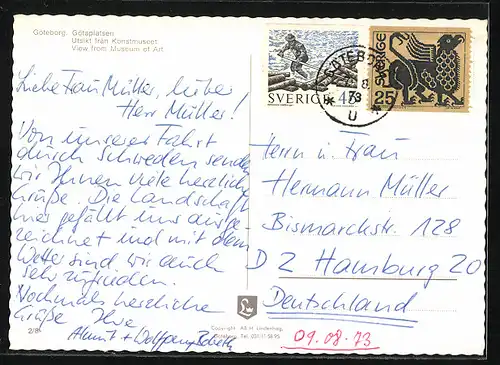 Göteborg. Götaplatsen
Utsikt från Konstmuseet
View from Museum of Art.
Liebe Frau Müller, lieber
Herr Müller!
Von unserer Fahrt
durch Schweden senden
wir Ihnen viele herzliche
Grüße. Die Landschaft
hier gefällt uns ausge-
zeichnet und mit dem
Wetter sind wir auch
sehr zufrieden.
Nochmals herzliche
Grüße Ihre
+ Wolfgang
2/81
SVERIGE
SVERIGE 25
GÖTEBORG
8
73
U
Herrn u. Frau
Hermann Müller
Bismarckstr. 128
D 2 Hamburg 20
Deutschland
09.08.73
Copyright: AB H. Lindenhag,
Göteborg. Tel.